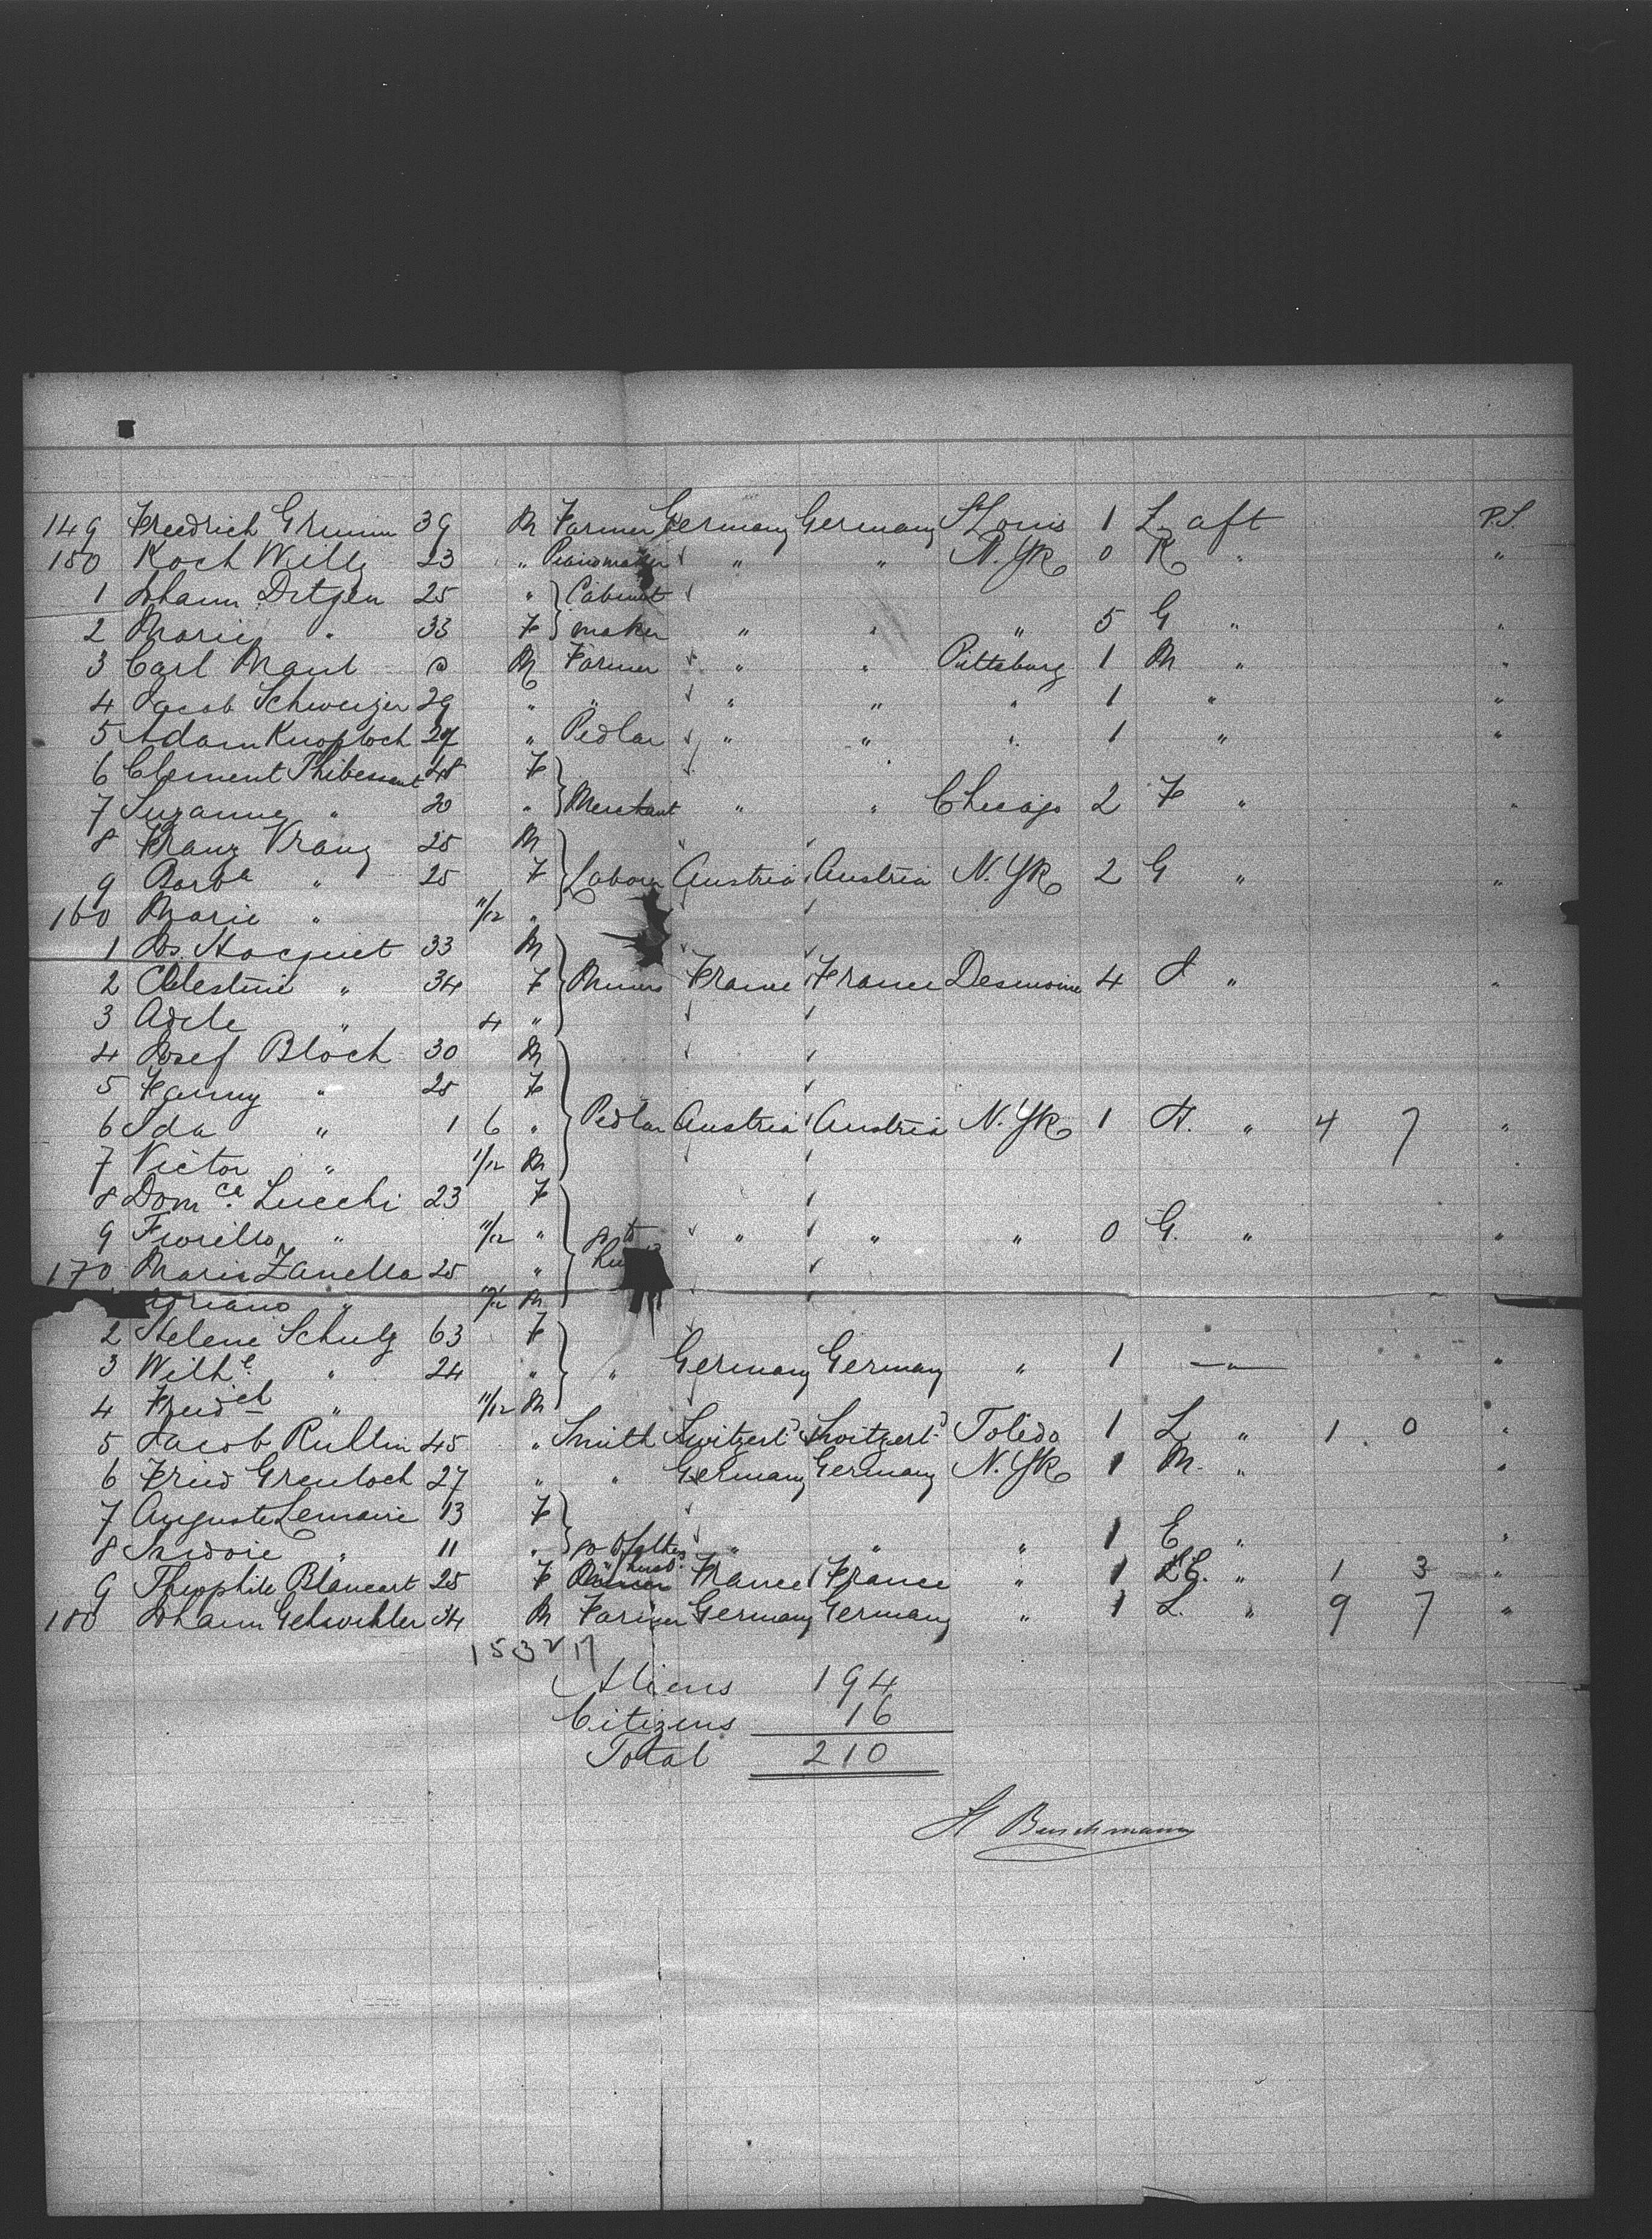 149 Friedrich Grunin 39 M Farmer Germany Germany St Louis 1 L aft P.S.
150 Koch Willy 23 " Pianomaker " " N. Yk 0 K " "
1 Johann Ditgen 25 " Cabinet
2 Marie " 33 F maker " " " 5 G " "
3 Carl Maul M Farmer " " Pittsburg 1 M " "
4 Jacob Schweizer 29 " " " " " 1 " "
5 Adam Knobloch " Pedlar " " " 1 " "
6 Clement 48 F
7 Suzanne " 20 " Merchant " " Chicago 2 F " "
8 Franz Vrany 25 M
9 Barba " 25 F Labour Austria Austria N. Yk 2 G " "
160 Marie " 11/12 "
1 Js. Hocquet 33 M
2 Celestine " 34 F Miners France France Desmoine 4 J " "
3 Adele " 4 "
4 Josef Bloch 30 M
5 Fanny " 25 F
6 Ida " 1 6 " Pedlar Austria Austria N. Yk 1 H. " 4 7 "
7 Victor " 1/12 M
8 Domca. Lucchi 23 F
9 Fiorello " 11/12 " " " " 0 G. " "
170 Maria Zanella 25 "
" M
2 Helene Schulz 63 F
3 Wilhe " 24 " " Germany Germany " 1 —"— "
4 Friedch " 11/12 M
5 Jacob Rullin 45 " Smith Switzerld Switzerld Toledo 1 L " 1 0 "
6 Fried Grenloch 27 " " Germany Germany N. Yk 1 M. " "
7 Auguste Lemaire 13 F
8 Isidore " 11 " to father " " " 1 E " "
9 Theophile Blancart 25 F husb. France France " 1 " 1 3 "
180 Johann Gehwihler 34 M Farmer Germany Germany " 1 L. " 9 7 "
153 17
Aliens 194
Citizens 16
Total 210
H Buschmann